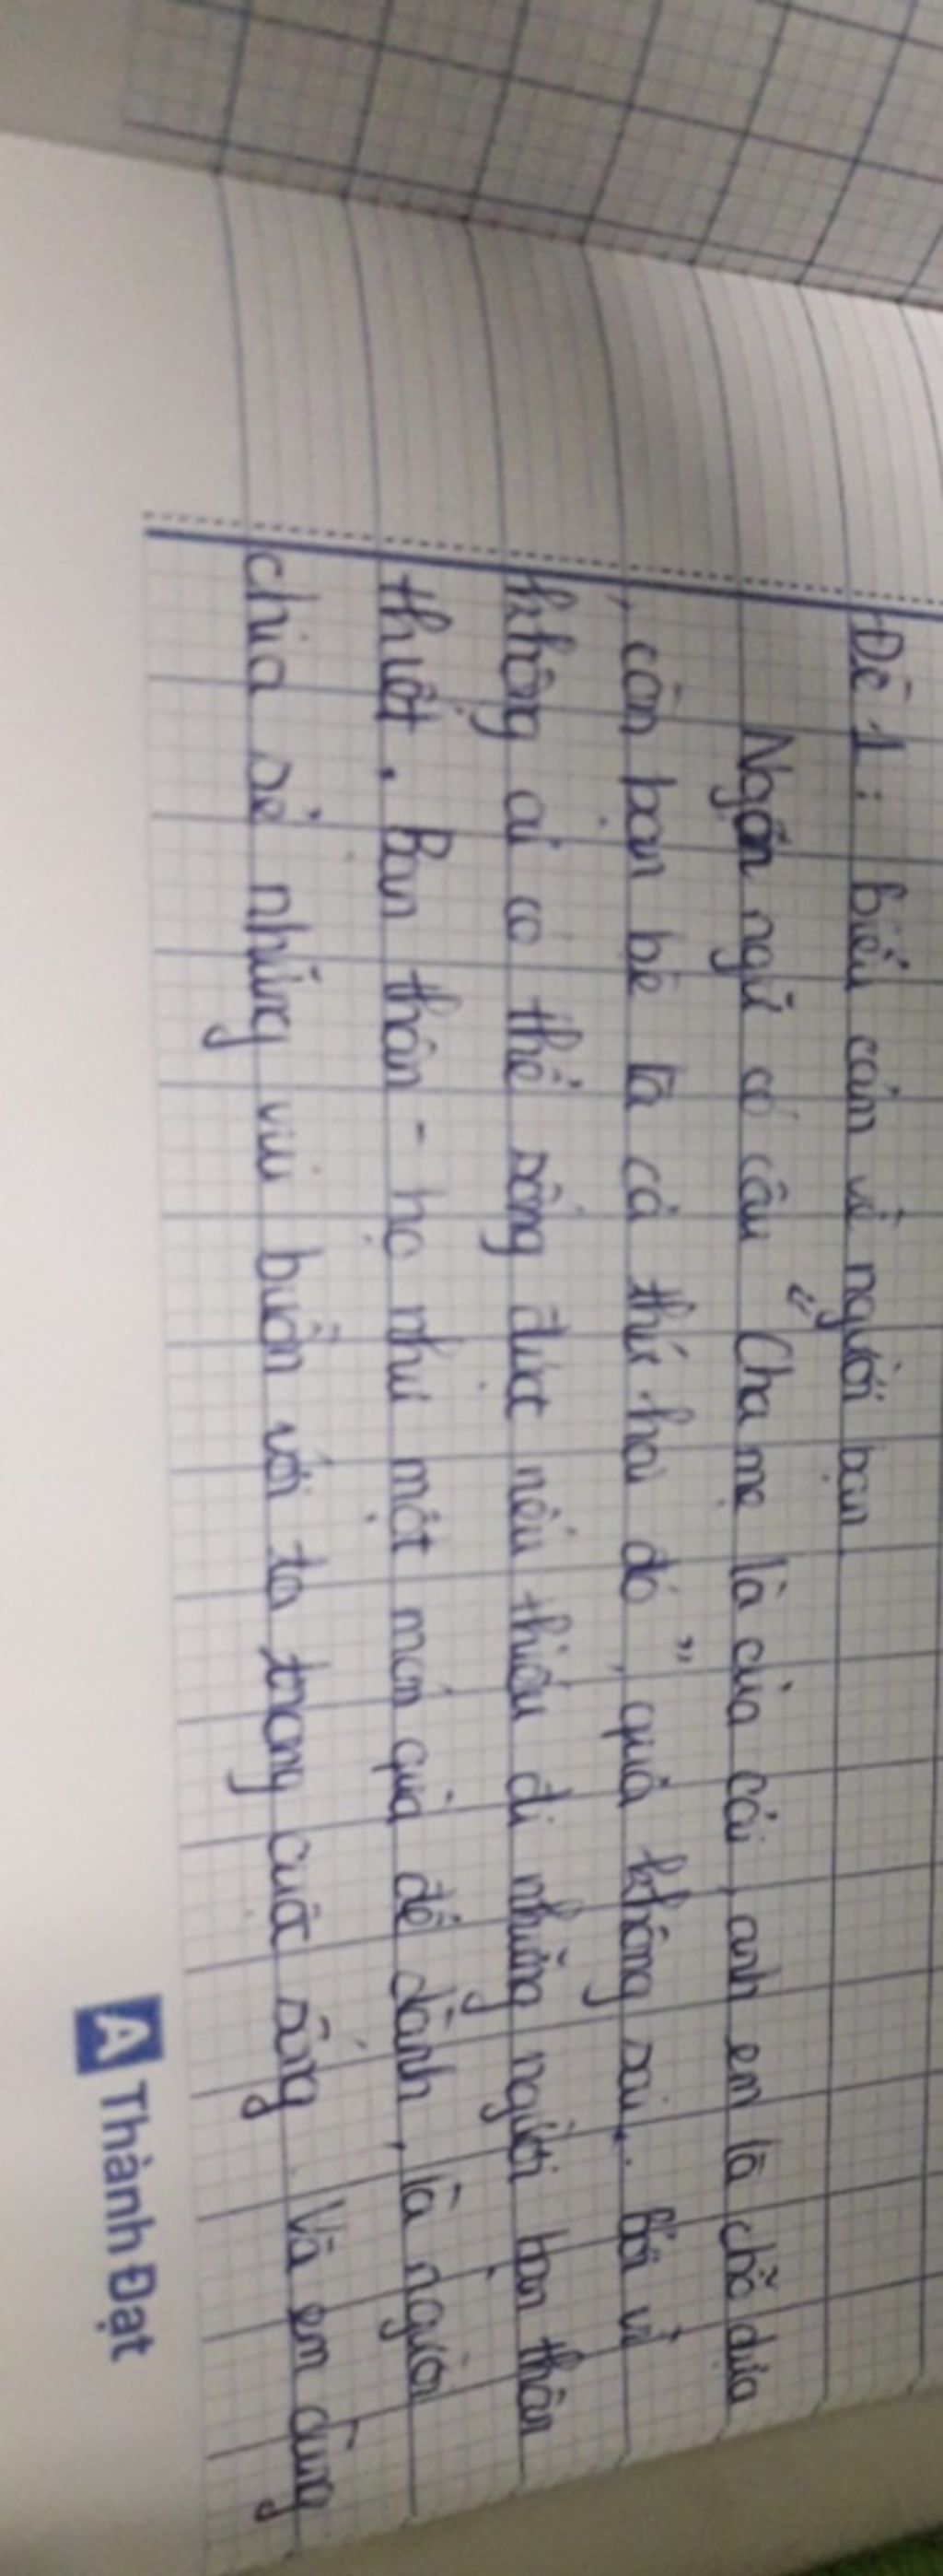 Đề 1: biểu cảm về người bạn.
Ngạn ngữ có câu "Cha mẹ là của cải, anh em là chỗ dựa
, còn bạn bè là cả thứ hai đó", quả không sai. Bởi vì
không ai có thể sống được nếu thiếu đi những người bạn thân
thuột. Bạn thân - họ như một món quà để dành, là người
chia sẻ những vui buồn với ta trong cuộc sống. Và em cũng
A Thành Đạt